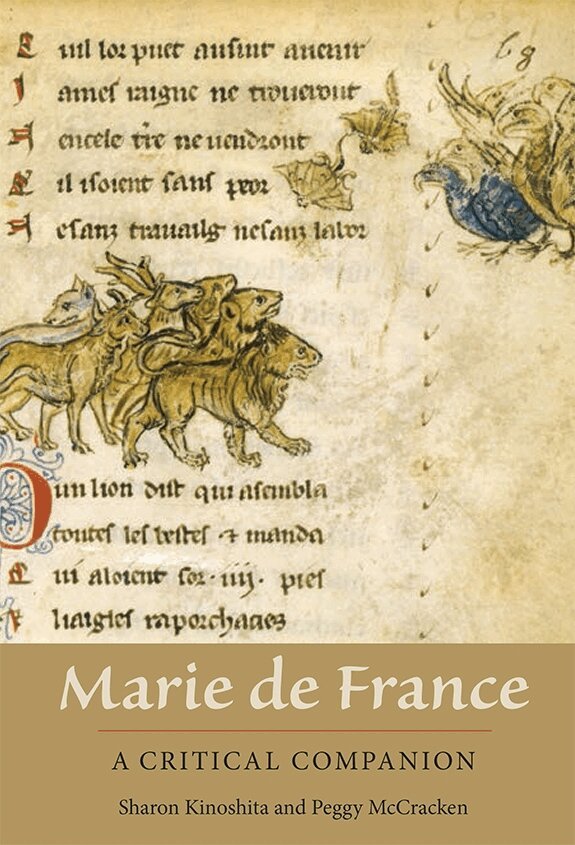 uil lor puet ausint auenir
I ames uaigne ne troueront
A encele tr̄e ne uendront
K il isoient sanz peor
esanz trauailg nesanz labor
D un lion dist qui asembla
toutes les bestes ⁊ manda
ui aloient sor ·iiij· pies
liaigles
Marie de France
A CRITICAL COMPANION
Sharon Kinoshita and Peggy McCracken